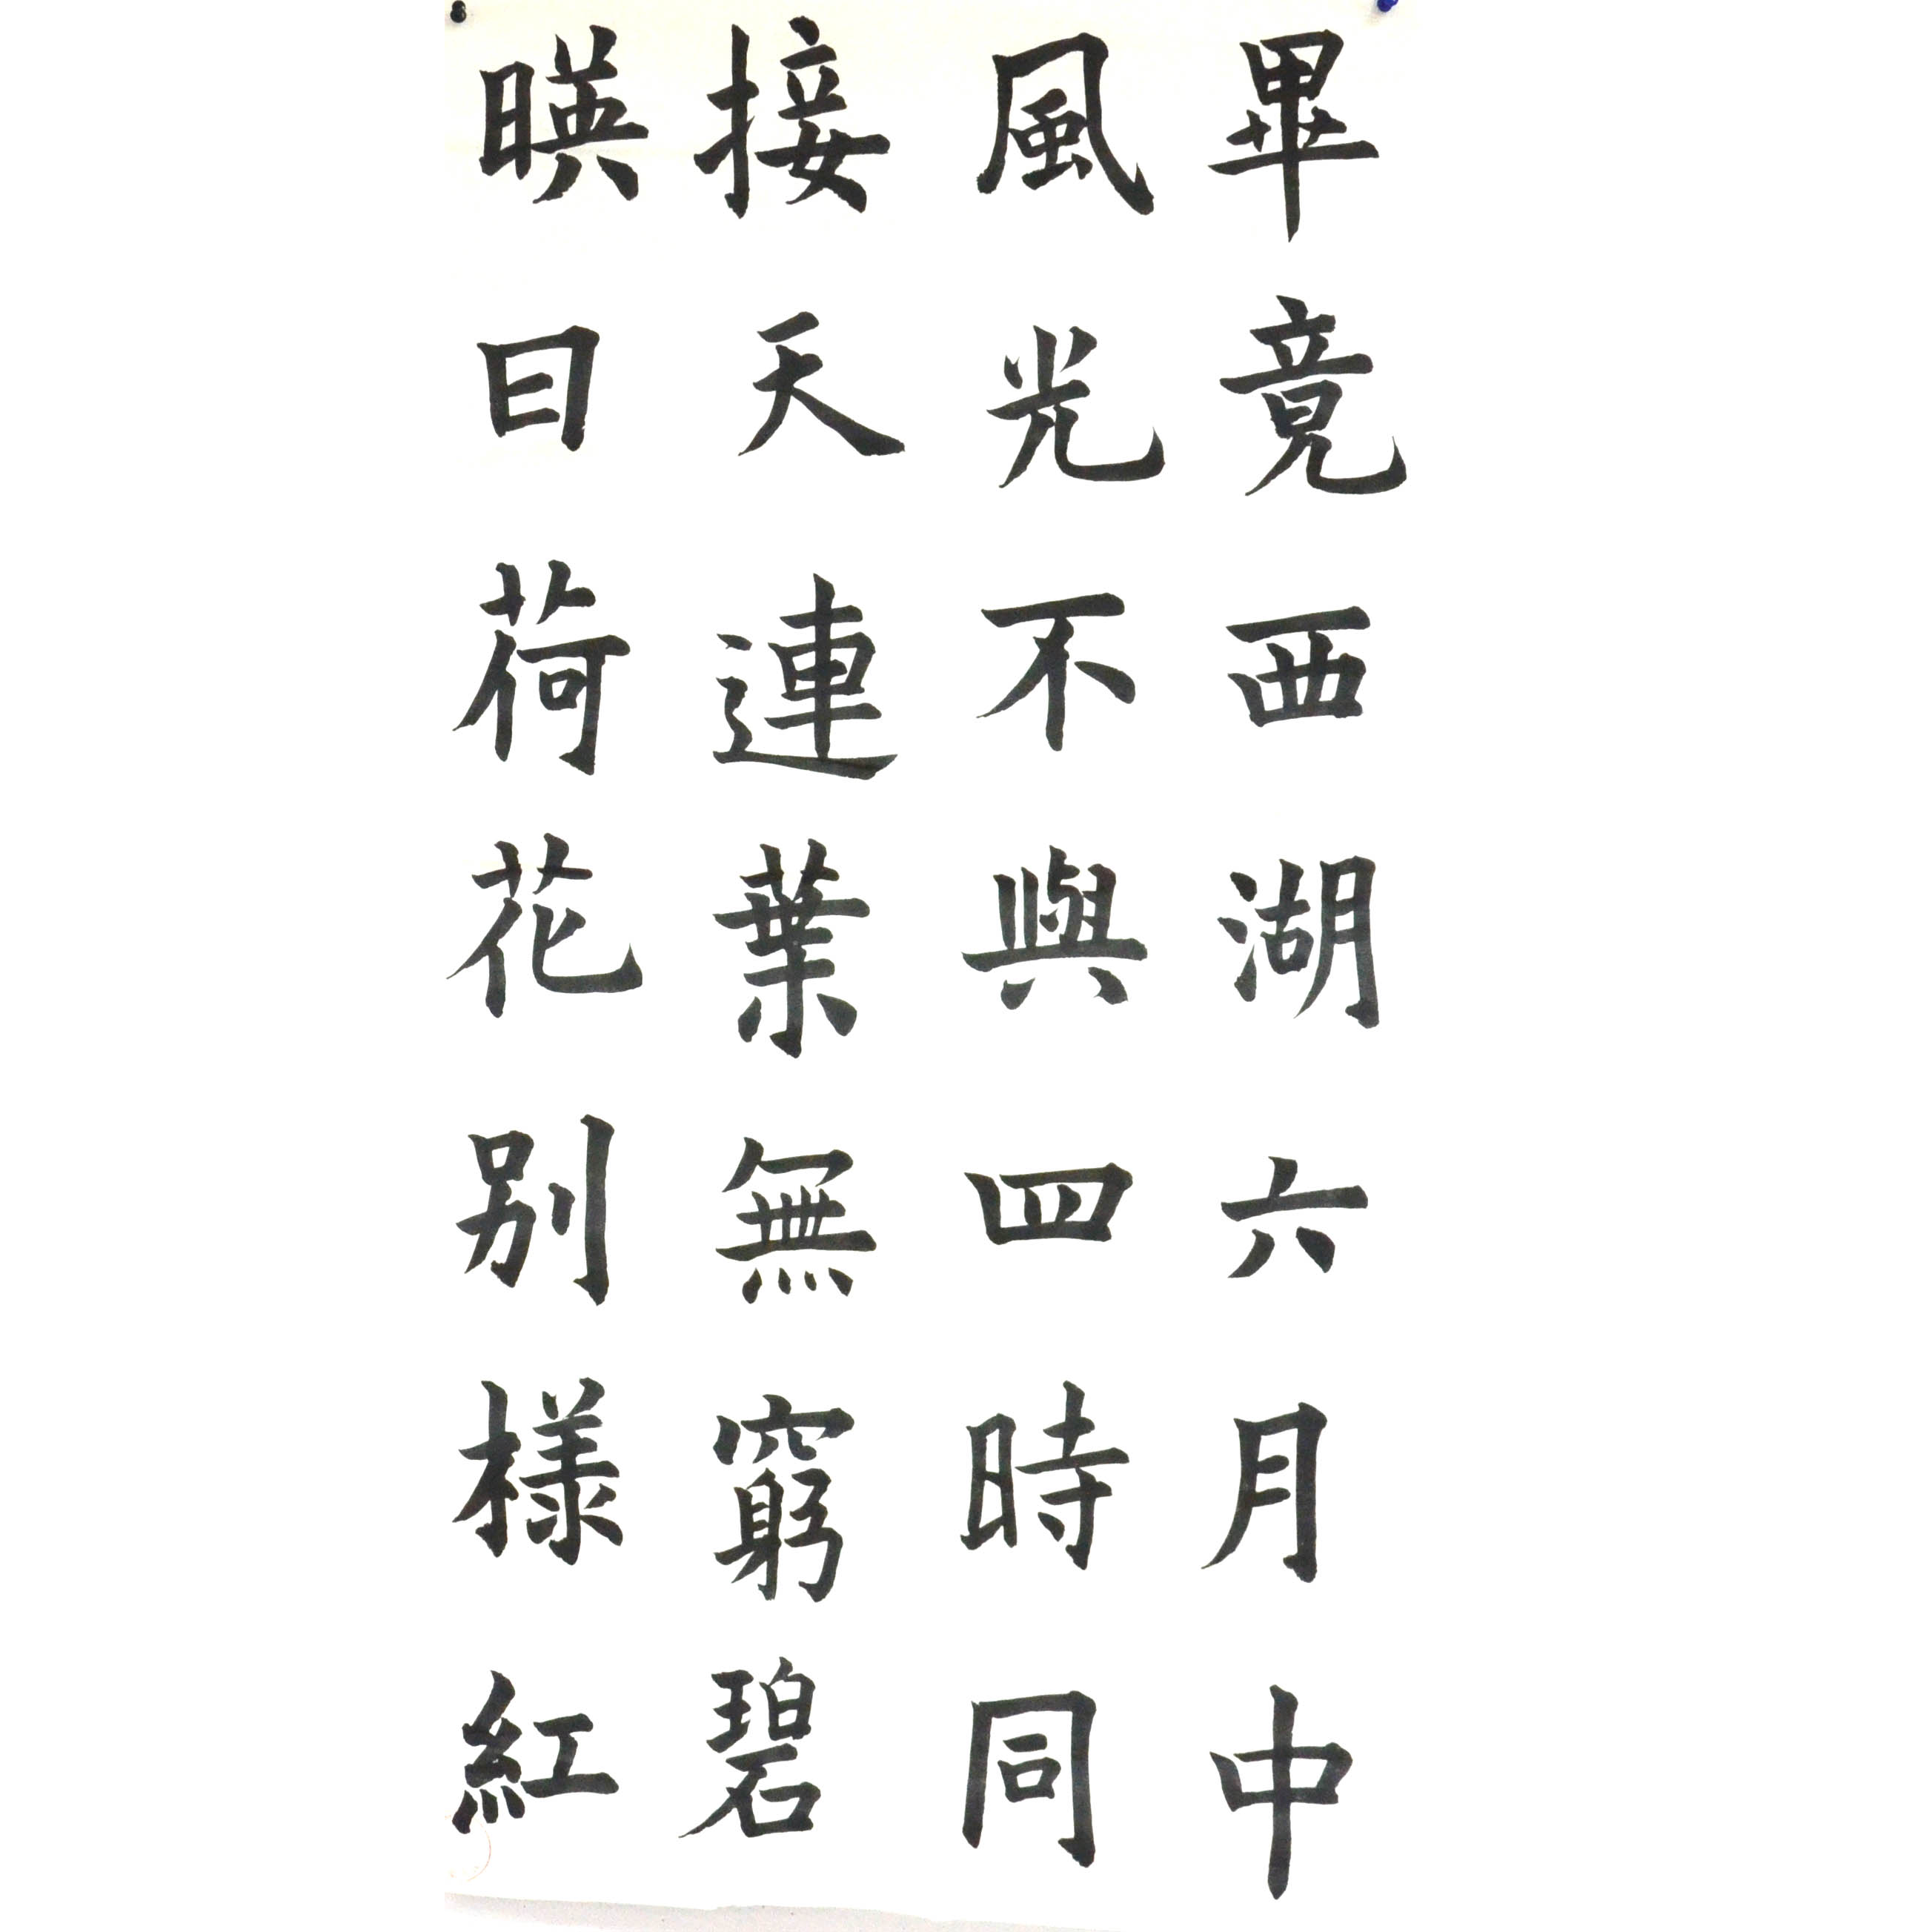 畢竟西湖六月中
風光不與四時同
接天連葉無窮碧
暎日荷花別樣紅